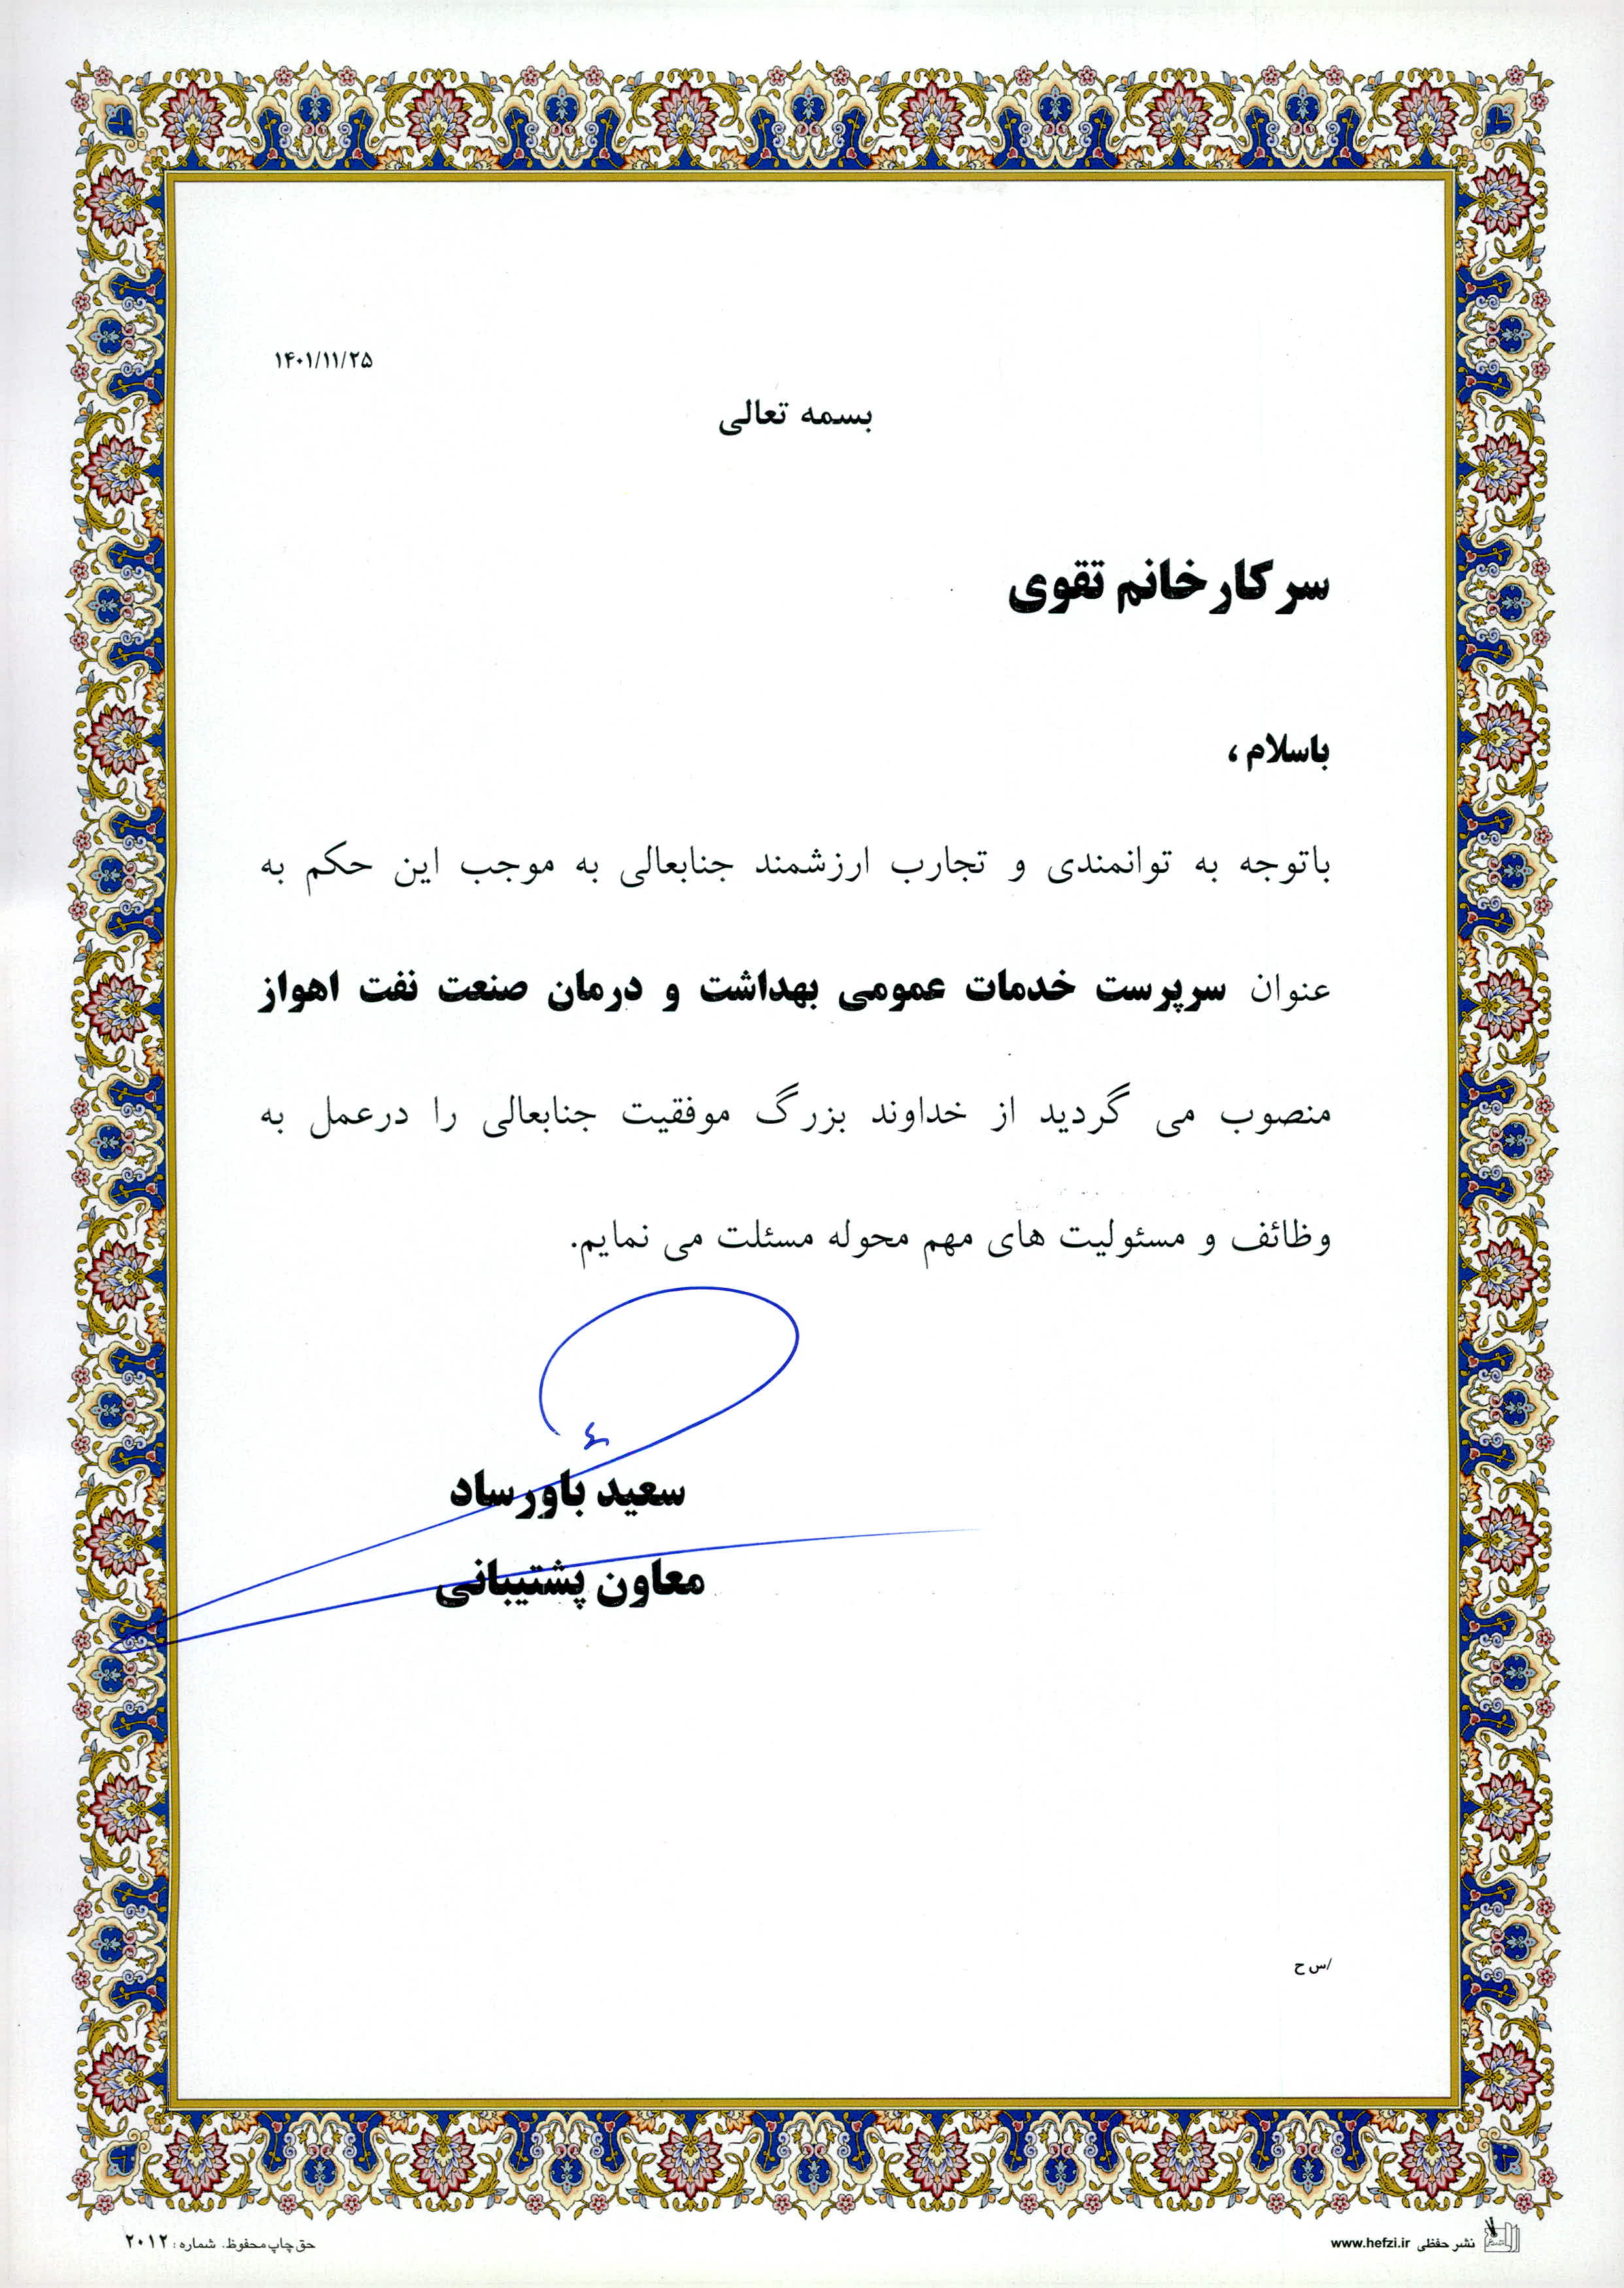 ۱۴۰۱/۱۱/۲۵
بسمه تعالی
سرکار خانم تقوی
باسلام ،
باتوجه به توانمندی و تجارب ارزشمند جنابعالی به موجب این حکم به
عنوان سرپرست خدمات عمومی بهداشت و درمان صنعت نفت اهواز
منصوب می گردید از خداوند بزرگ موفقیت جنابعالی را درعمل به
وظائف و مسئولیت های مهم محوله مسئلت می نمایم.
سعید باورساد
معاون پشتیبانی
/س ح
نشر حفظی www.hefzi.ir
حق چاپ محفوظ. شماره: ۲۰۱۲